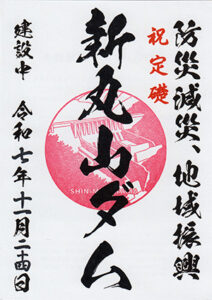 防災減災 地域振興
祝定礎
新丸山ダム
SHIN-M
建設中 令和七年十一月二十四日